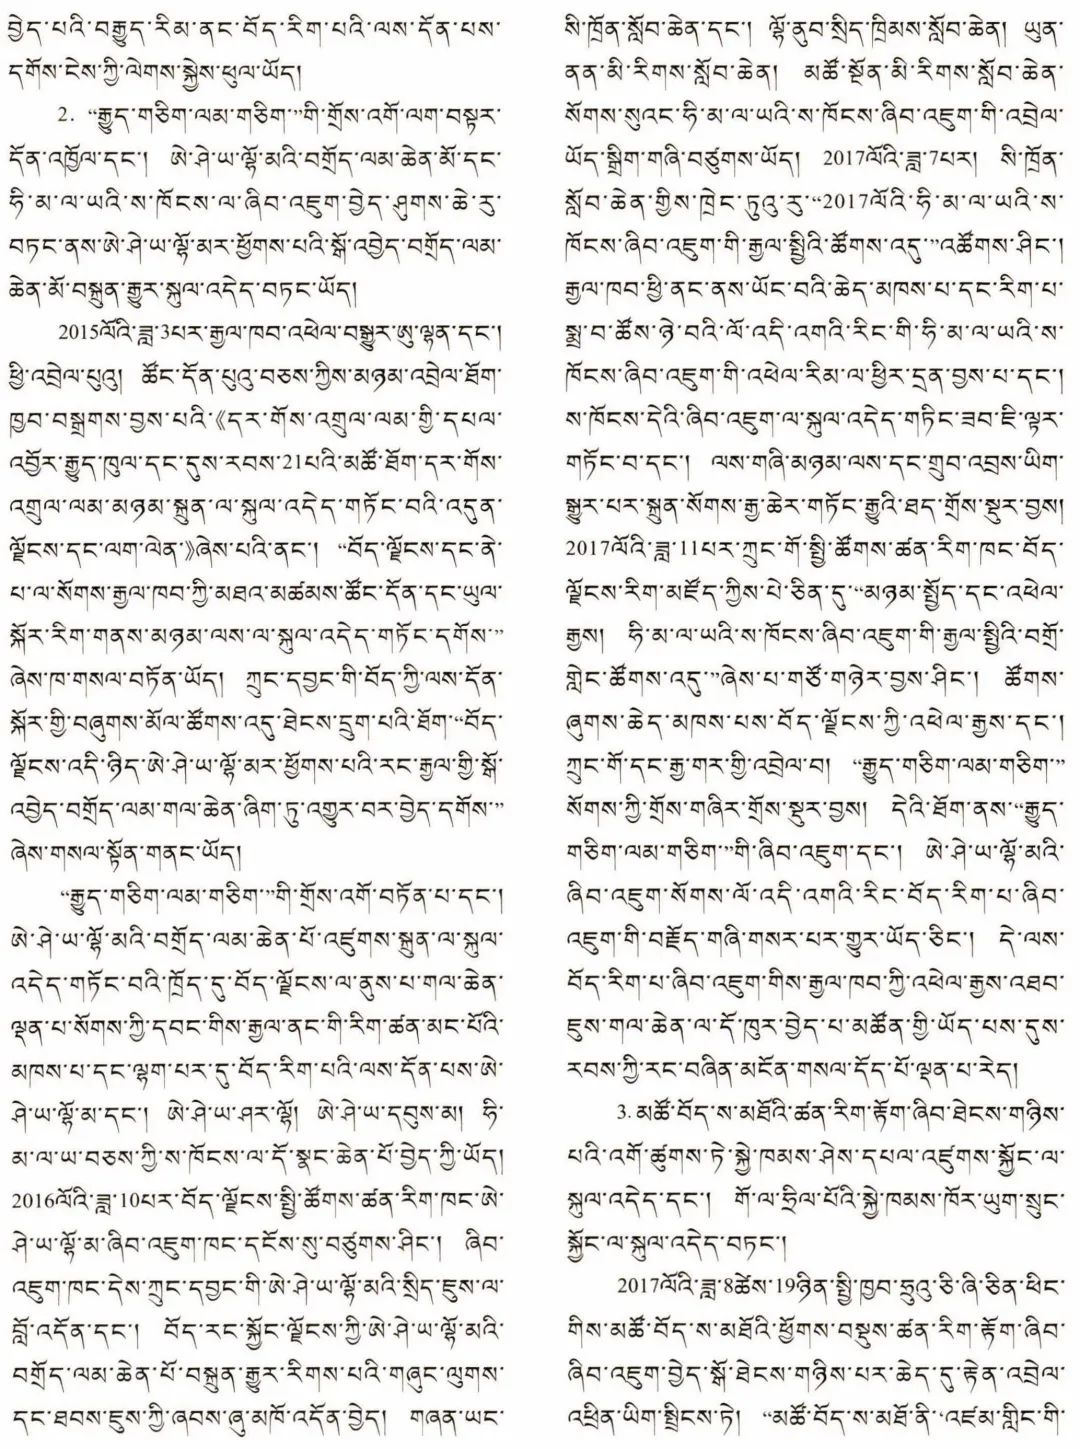 བྱེད་པའི་བརྒྱུད་རིམ་ནང་བོད་རིག་པའི་ལས་དོན་པས་
དགོས་ངེས་ཀྱི་ལེགས་སྐྱེས་ཕུལ་ཡོད།
2. “རྒྱུད་གཅིག་ལམ་གཅིག་”གི་གྲོས་འགོ་ལག་བསྟར་
དོན་འཁྱོལ་དང་། ཨེ་ཤེ་ཡ་ལྷོ་མའི་བགྲོད་ལམ་ཆེན་མོ་དང་
ཧི་མ་ལ་ཡའི་ས་ཁོངས་ལ་ཞིབ་འཇུག་བྱེད་ཤུགས་ཆེ་རུ་
བཏང་ནས་ཨེ་ཤེ་ཡ་ལྷོ་མར་ཕྱོགས་པའི་སྒོ་འབྱེད་བགྲོད་ལམ་
ཆེན་མོ་བསྐྲུན་རྒྱུར་སྐུལ་འདེད་བཏང་ཡོད།
2015ལོའི་ཟླ་3པར་རྒྱལ་ཁབ་འཕེལ་བསྒྱུར་ཨུ་ལྷན་དང་།
ཕྱི་འབྲེལ་པུའུ། ཚོང་དོན་པུའུ་བཅས་ཀྱིས་མཉམ་འབྲེལ་ཐོག་
ཁྱབ་བསྒྲགས་བྱས་པའི་《དར་གོས་འགྲུལ་ལམ་གྱི་དཔལ་
འབྱོར་རྒྱུད་ཁུལ་དང་དུས་རབས་21པའི་མཚོ་ཐོག་དར་གོས་
འགྲུལ་ལམ་མཉམ་སྐྲུན་ལ་སྐུལ་འདེད་གཏོང་བའི་འདུན་
ལྗོངས་དང་ལག་ལེན་》ཞེས་པའི་ནང་། “བོད་ལྗོངས་དང་ནེ་
པ་ལ་སོགས་རྒྱལ་ཁབ་ཀྱི་མཐའ་མཚམས་ཚོང་དོན་དང་ཡུལ་
སྐོར་རིག་གནས་མཉམ་ལས་ལ་སྐུལ་འདེད་གཏོང་དགོས་”
ཞེས་ཁ་གསལ་བཏོན་ཡོད། ཀྲུང་དབྱང་གི་བོད་ཀྱི་ལས་དོན་
སྐོར་གྱི་བཞུགས་མོལ་ཚོགས་འདུ་ཐེངས་དྲུག་པའི་ཐོག་“བོད་
ལྗོངས་འདི་ཉིད་ཨེ་ཤེ་ཡ་ལྷོ་མར་ཕྱོགས་པའི་རང་རྒྱལ་གྱི་སྒོ་
འབྱེད་བགྲོད་ལམ་གལ་ཆེན་ཞིག་ཏུ་འགྱུར་བར་བྱེད་དགོས་”
ཞེས་གསལ་སྟོན་གནང་ཡོད།
“རྒྱུད་གཅིག་ལམ་གཅིག་”གི་གྲོས་འགོ་བཏོན་པ་དང་།
ཨེ་ཤེ་ཡ་ལྷོ་མའི་བགྲོད་ལམ་ཆེན་པོ་འཛུགས་སྐྲུན་ལ་སྐུལ་
འདེད་གཏོང་བའི་ཁྲོད་དུ་བོད་ལྗོངས་ལ་ནུས་པ་གལ་ཆེན་
ལྡན་པ་སོགས་ཀྱི་དབང་གིས་རྒྱལ་ནང་གི་རིག་ཚན་མང་པོའི་
མཁས་པ་དང་ལྷག་པར་དུ་བོད་རིག་པའི་ལས་དོན་པས་ཨེ་
ཤེ་ཡ་ལྷོ་མ་དང་། ཨེ་ཤེ་ཡ་ཤར་ལྷོ། ཨེ་ཤེ་ཡ་དབུས་མ། ཧི་
མ་ལ་ཡ་བཅས་ཀྱི་ས་ཁོངས་ལ་དོ་སྣང་ཆེན་པོ་བྱེད་ཀྱི་ཡོད།
2016ལོའི་ཟླ་10པར་བོད་ལྗོངས་སྤྱི་ཚོགས་ཚན་རིག་ཁང་ཨེ་
ཤེ་ཡ་ལྷོ་མ་ཞིབ་འཇུག་ཁང་དངོས་སུ་བཙུགས་ཤིང་། ཞིབ་
འཇུག་ཁང་དེས་ཀྲུང་དབྱང་གི་ཨེ་ཤེ་ཡ་ལྷོ་མའི་སྲིད་ཇུས་ལ་
བློ་འདོན་དང་། བོད་རང་སྐྱོང་ལྗོངས་ཀྱི་ཨེ་ཤེ་ཡ་ལྷོ་མའི་
བགྲོད་ལམ་ཆེན་པོ་བསྐྲུན་རྒྱུར་རིགས་པའི་གཞུང་ལུགས་
དང་ཐབས་ཇུས་ཀྱི་ཞབས་ཞུ་མཁོ་འདོན་བྱེད། གཞན་ཡང་
སི་ཁྲོན་སློབ་ཆེན་དང་། ལྷོ་ནུབ་སྲིད་ཁྲིམས་སློབ་ཆེན། ཡུན་
ནན་མི་རིགས་སློབ་ཆེན། མཚོ་སྔོན་མི་རིགས་སློབ་ཆེན་
སོགས་སུའང་ཧི་མ་ལ་ཡའི་ས་ཁོངས་ཞིབ་འཇུག་གི་འབྲེལ་
ཡོད་སྒྲིག་གཞི་བཙུགས་ཡོད། 2017ལོའི་ཟླ་7པར། སི་ཁྲོན་
སློབ་ཆེན་གྱིས་ཁྲེང་ཏུའུ་རུ་“2017ལོའི་ཧི་མ་ལ་ཡའི་ས་
ཁོངས་ཞིབ་འཇུག་གི་རྒྱལ་སྤྱིའི་ཚོགས་འདུ་”འཚོགས་ཤིང་།
རྒྱལ་ཁབ་ཕྱི་ནང་ནས་ཡོང་བའི་ཆེད་མཁས་པ་དང་རིག་པ་
སྨྲ་བ་ཚོས་ཉེ་བའི་ལོ་འདི་འགའི་རིང་གི་ཧི་མ་ལ་ཡའི་ས་
ཁོངས་ཞིབ་འཇུག་གི་འཕེལ་རིམ་ལ་ཕྱིར་དྲན་བྱས་པ་དང་།
ས་ཁོངས་དེའི་ཞིབ་འཇུག་ལ་སྐུལ་འདེད་གཏིང་ཟབ་ཇི་ལྟར་
གཏོང་བ་དང་། ལས་གཞི་མཉམ་ལས་དང་གྲུབ་འབྲས་ཡིག་
སྒྱུར་པར་སྐྲུན་སོགས་རྒྱ་ཆེར་གཏོང་རྒྱུའི་ཐད་གྲོས་སྡུར་བྱས།
2017ལོའི་ཟླ་11པར་ཀྲུང་གོ་སྤྱི་ཚོགས་ཚན་རིག་ཁང་བོད་
ལྗོངས་རིག་མཛོད་ཀྱིས་པེ་ཅིན་དུ་“མཉམ་སྤྱོད་དང་འཕེལ་
རྒྱས། ཧི་མ་ལ་ཡའི་ས་ཁོངས་ཞིབ་འཇུག་གི་རྒྱལ་སྤྱིའི་བགྲོ་
གླེང་ཚོགས་འདུ་”ཞེས་པ་གཙོ་གཉེར་བྱས་ཤིང་། ཚོགས་
ཞུགས་ཆེད་མཁས་པས་བོད་ལྗོངས་ཀྱི་འཕེལ་རྒྱས་དང་།
ཀྲུང་གོ་དང་རྒྱ་གར་གྱི་འབྲེལ་བ། “རྒྱུད་གཅིག་ལམ་གཅིག་”
སོགས་ཀྱི་གྲོས་གཞིར་གྲོས་སྡུར་བྱས། དེའི་ཐོག་ནས་“རྒྱུད་
གཅིག་ལམ་གཅིག་”གི་ཞིབ་འཇུག་དང་། ཨེ་ཤེ་ཡ་ལྷོ་མའི་
ཞིབ་འཇུག་སོགས་ལོ་འདི་འགའི་རིང་བོད་རིག་པ་ཞིབ་
འཇུག་གི་བརྗོད་གཞི་གསར་པར་གྱུར་ཡོད་ཅིང་། དེ་ལས་
བོད་རིག་པ་ཞིབ་འཇུག་གིས་རྒྱལ་ཁབ་ཀྱི་འཕེལ་རྒྱས་འཐབ་
ཇུས་གལ་ཆེན་ལ་དོ་ཁུར་བྱེད་པ་མཚོན་གྱི་ཡོད་པས་དུས་
རབས་ཀྱི་རང་བཞིན་མངོན་གསལ་དོད་པོ་ལྡན་པ་རེད།
3. མཚོ་བོད་ས་མཐོའི་ཚན་རིག་རྟོག་ཞིབ་ཐེངས་གཉིས་
པའི་འགོ་ཚུགས་ཏེ་སྐྱེ་ཁམས་ཤེས་དཔལ་འཛུགས་སྐྱོང་ལ་
སྐུལ་འདེད་དང་། གོ་ལ་ཧྲིལ་པོའི་སྐྱེ་ཁམས་ཁོར་ཡུག་སྲུང་
སྐྱོང་ལ་སྐུལ་འདེད་བཏང་།
2017ལོའི་ཟླ་8ཚེས་19ཉིན་སྤྱི་ཁྱབ་ཧྲུའུ་ཅི་ཞི་ཅིན་ཕིང་
གིས་མཚོ་བོད་ས་མཐོའི་ཕྱོགས་བསྡུས་ཚན་རིག་རྟོག་ཞིབ་
ཞིབ་འཇུག་བྱེད་སྒོ་ཐེངས་གཉིས་པར་ཆེད་དུ་རྟེན་འབྲེལ་
འཕྲིན་ཡིག་སྤྲིངས་ཏེ། “མཚོ་བོད་ས་མཐོ་ནི་‘འཛམ་གླིང་གི་